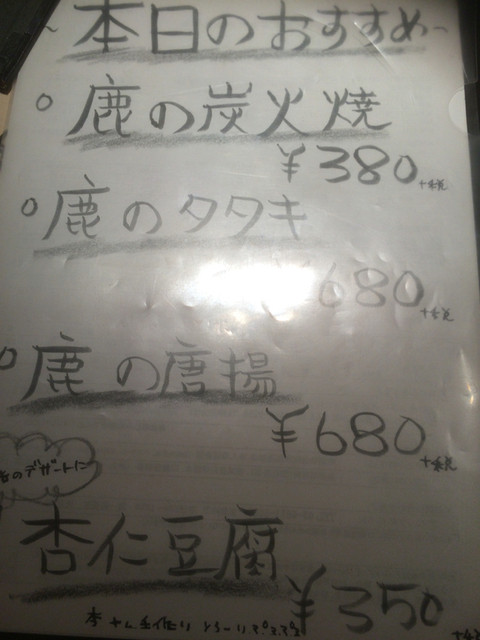 ~本日のおすすめ~
○鹿の炭火焼
¥380+税
○鹿のタタキ
680+税
○鹿の唐揚
¥680+税
のデザートに
杏仁豆腐
¥350